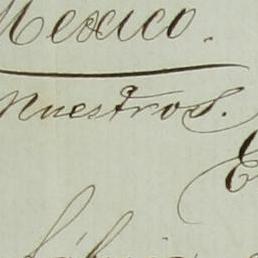 Mexico.
Nuestros.
E